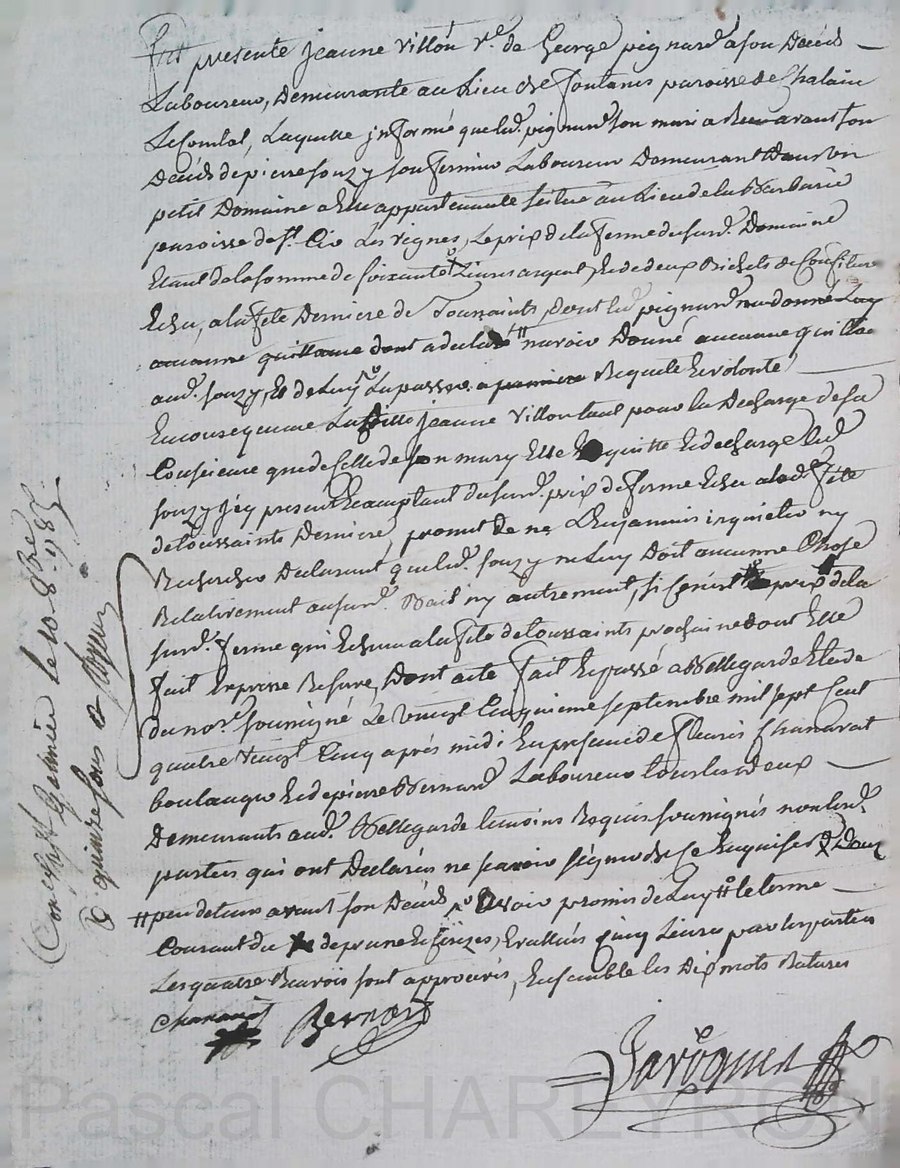 fut presente jeanne villon v.e de George pignard a son Déces
Laboureur, Demeurante au Lieu de fontanes paroisse de Chalain
Le Comtal, Laquelle informé que led. pignard son mari a Reçu avant son
Déces de pierre souzy son fermier Laboureur Demeurant dans son
petit Domaine a Elle appartenante scitué au Lieu de la Barbarie
paroisse de s.t Cir Les vignes, Le prix de la ferme dusd. Domaine
Etant de la somme de soixante Livres argent, Et de deux Bichets de
Echu, a la fête Derniere de Toussaints, dont led. pignard
aucunne quittance dont a declaré # n'avoir Donné aucunne quittance
aud. souzy, Et de Luy La passer a premiere Requete Et volonté
En consequence Laditte jeanne villon tant pour la Decharge de sa
Consience que de Celle de son mary Elle quitte Et decharge led.
souzy icy present Et acceptant dusurd. prix de ferme Echu a lad. fête
de toussaints Derniere, promet de ne L'En jammais inquieter ny
Rechercher Declarant que led. souzy ne Luy Doit aucunne Chose
Relativement ausurd. Bail ny autrement, si ce n'est Le prix de la
surd. ferme qui Echera a la fête de toussaints prochaine dont Elle
fait Expresse Reserve, Dont acte fait Et passé a Bellegarde Etude
du not.re soussigné Le vingt Cinquieme septembre mil sept Cent
quatre vingt Cinq aprés midi En presence de fleuris Chanavat
boulanger Et de pierre Bernard Laboureur tous Les deux
Demeurants aud. Bellegarde temoins Requis soussignés non Les d.
parties qui ont Declarés ne savoir signer de ce Enquises
# peu de tems avant son Déces avoir promis de Luy # le terme
Courant du de prune Et Evallués Cinq Livres par Les parties
Les quatre Renvois sont approuvés, Ensemble Les Dix mots Raturés
Chanavat Bernard
Jaroques
Con.lé a s.t Galmier le 10 8.bre 1785
R quinze sous